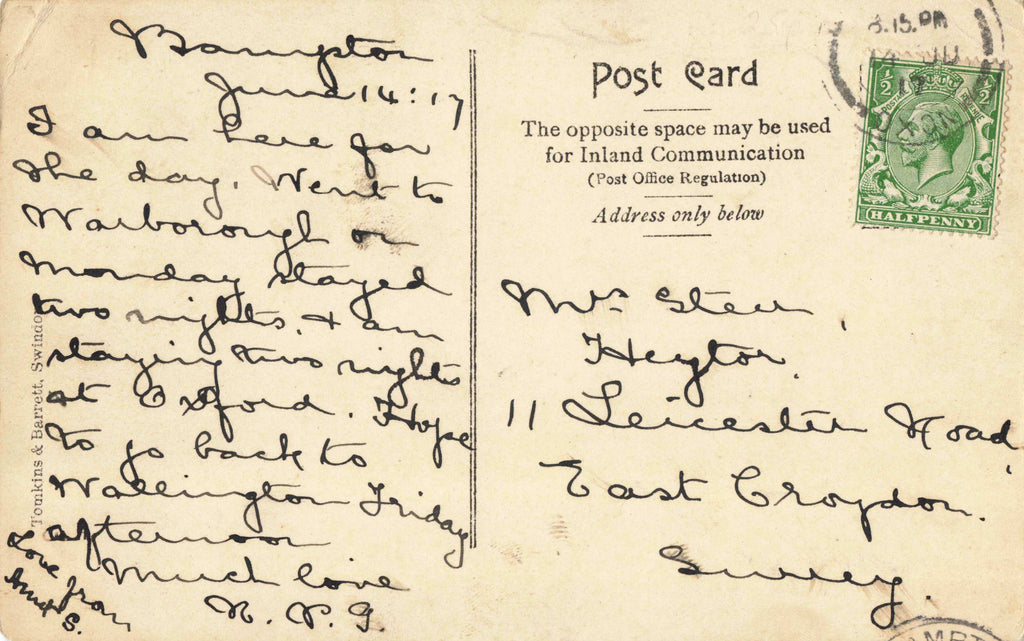 Bampton
June 14:17
I am here for
the day. Went to
Warborough on
Monday stayed
two nights. + am
staying two nights
at Oxford. Hope
to go back to
Wallington Friday
afternoon
Much love
N. P. G.
Love from
S.
Tomkins & Barrett, Swindon
Post Card
The opposite space may be used
for Inland Communication
(Post Office Regulation)
Address only below
8.15.PM
14 JU
17
½ ½
HALFPENNY
Mrs Steer,
Heytor.
11 Leicester Road,
East Croydon.
Surrey.